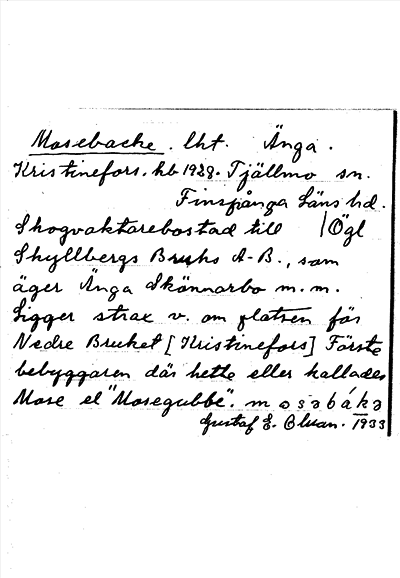 Mosebacke. lht. Änga.
Kristinefors. hb 1928. Tjällmo sn.
Finspånga Läns hd.
Skogvaktarebostad till | Ögl
Skyllbergs Bruks A-B., som
äger Änga Skönnarbo m. m.
Ligger strax v. om platsen för
Nedre Bruket [Kristinefors] Förste
bebyggaren där hette eller kallades
Mose el "Mosegubbe". m ɷ s ə b á k ə
Gustaf E. Olsson. 1933